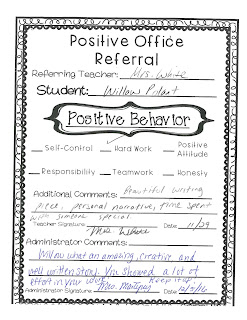 Positive Office
Referral
Referring Teacher: Mrs. White
Student: Willow
Positive Behavior
Self-Control Hard Work Positive Attitude
Responsibility Teamwork Honesty
Additional Comments: Beautiful writing
piece, personal narrative, time spent
with someone special.
Teacher Signature Date 11/29
Administrator Comments:
Willow what an amazing, creative and
well written story. You showed a lot of
effort in your work. Keep it up
Administrator Signature Mrs. Date